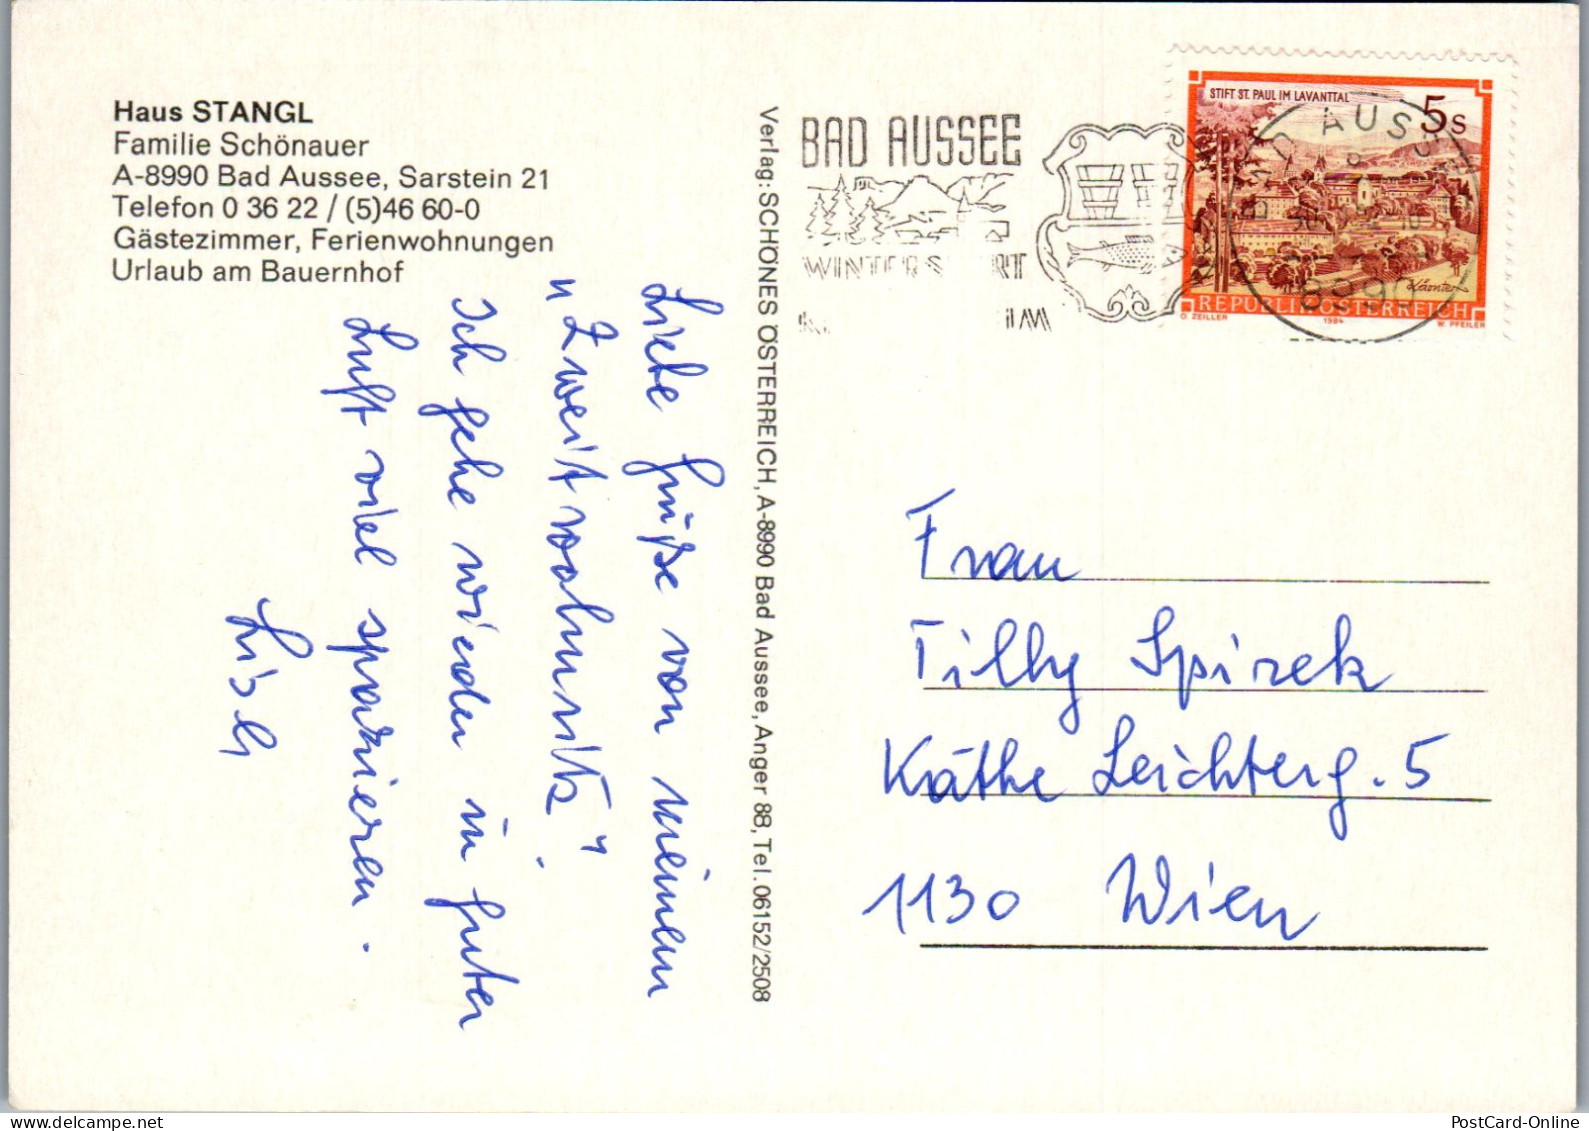 Haus STANGL
Familie Schönauer
A-8990 Bad Aussee, Sarstein 21
Telefon 0 36 22 / (5)46 60-0
Gästezimmer, Ferienwohnungen
Urlaub am Bauernhof
Liebe Grüße von meinem
„Zweitwohnsitz".
Ich gehe wieder in guter
Luft viel spazieren.
Verlag: SCHÖNES ÖSTERREICH, A-8990 Bad Aussee, Anger 88, Tel. 06152/2508
BAD AUSSEE
WINTERSPORT
STIFT ST. PAUL IM LAVANTTAL
5 S
Kärnten
REPUBLIK ÖSTERREICH
O. ZEILLER 1984 W. PFEILER
BAD AUSSEE
8990
Frau
Tilly Spirek
Käthe Leichterg. 5
1130 Wien